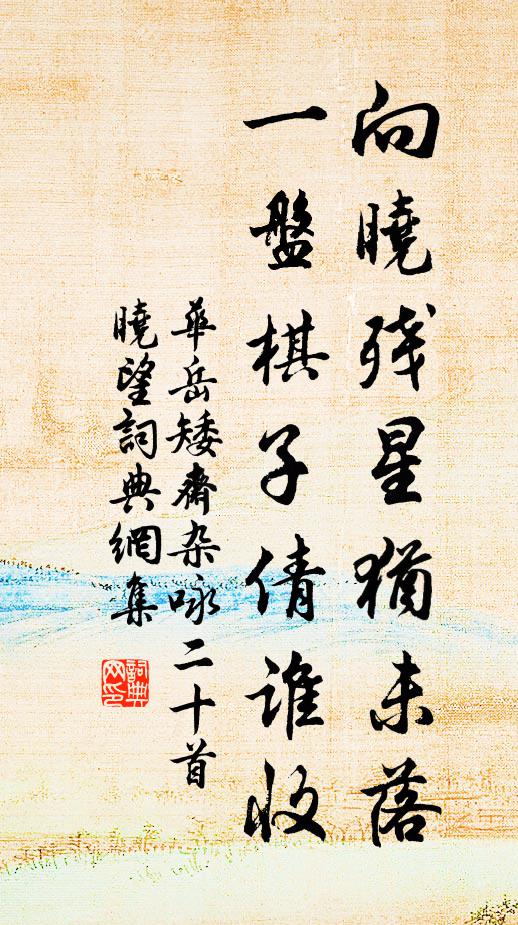 向曉残星猶未落
一盤棋子倩誰收
華岳矮齋杂咏二十首
曉望詞典網集
詞典网印